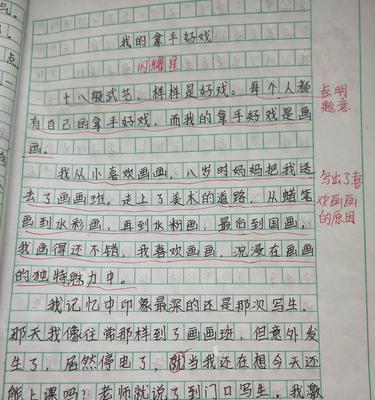 我的拿手好戏
闪耀星
十八般武艺，样样是好戏。每个人都
有自己的拿手好戏，而我的拿手好戏是画
画。
点明
题意
我从小喜欢画画，八岁时妈妈把我送
去了画画班。走上了美术的道路，从蜡笔
画到水彩画，再到水粉画，最后到国画，
我画得还不错，我喜欢画画，沉浸在画画
的独特魅力中。
写出了喜
欢画画
的原因
我记忆中印象最深的还是那次写生。
那天我像往常那样到了画画班，但意外发
生了，居然停电了，就当我还在想今天还
能上课吗？老师就说了到门口写生，我激